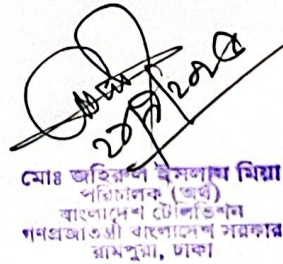 ২০/৭/২০২৫
মোঃ জহিরুল ইসলাম মিয়া
পরিচালক (অর্থ)
বাংলাদেশ টেলিভিশন
গণপ্রজাতন্ত্রী বাংলাদেশ সরকার
রামপুরা, ঢাকা